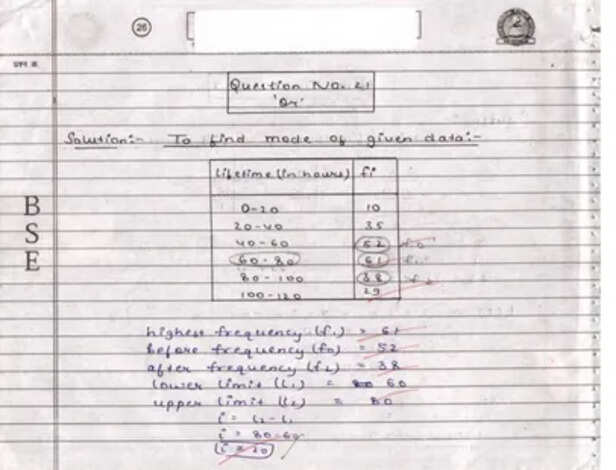 26
2
प्रश्न क्र.
Question No. 21
'Or'
Solution:- To find mode of given data:-
Lifetime (in hours) fi
0-20 10
20-40 35
40-60 52 f0
60-80 61 f1
80-100 38 f2
100-120 29
B
S
E
highest frequency (f1) = 61
before frequency (f0) = 52
after frequency (f2) = 38
lower limit (l1) = 60
upper limit (l2) = 80
i = l2-l1
i = 80-60
i = 20